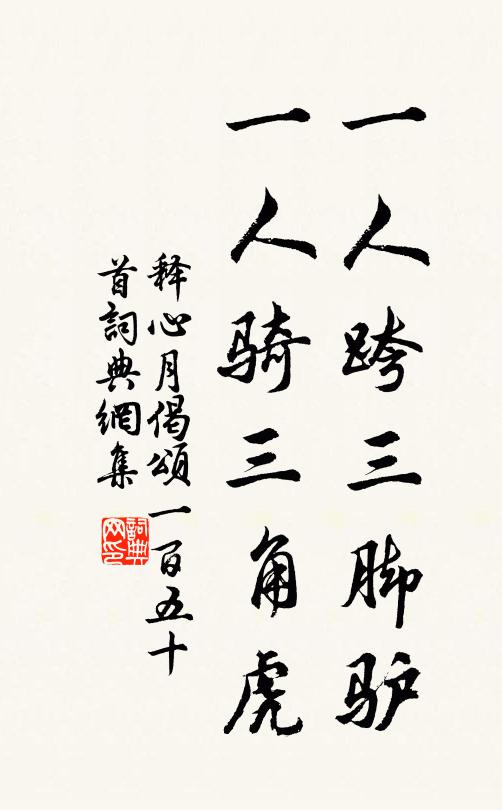 一人跨三脚驴
一人骑三角虎
释心月偈頌一百五十
首詞典網集
詞典
网印